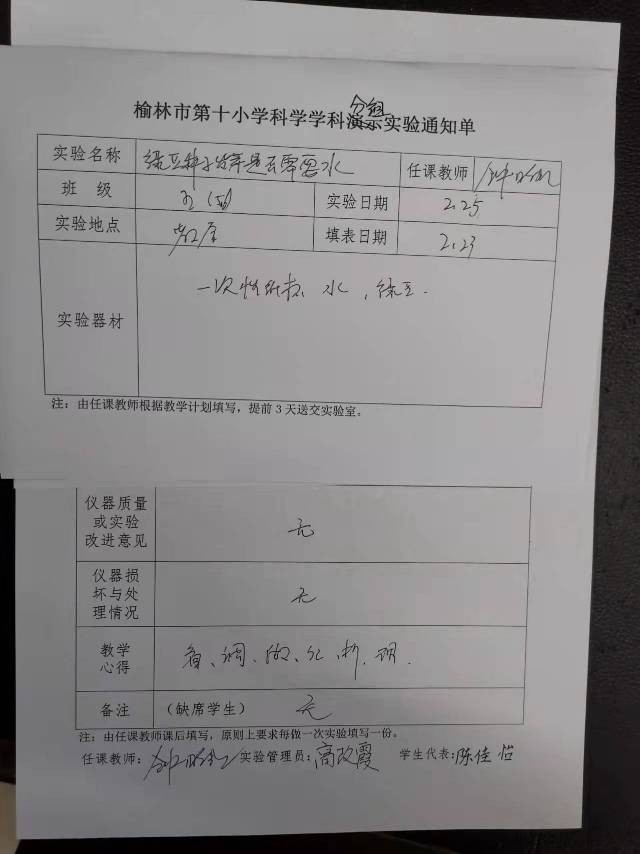 榆林市第十小学科学学科分组实验通知单
实验名称 绿豆种子发芽是否需要水 任课教师
班 级 五(四) 实验日期 2.25
实验地点 教室 填表日期 2.23
实验器材 一次性纸杯、水,绿豆.
注:由任课教师根据教学计划填写,提前3天送交实验室。
仪器质量
或实验
改进意见 无
仪器损
坏与处
理情况 无
教学
心得
备注 (缺席学生) 无
注:由任课教师课后填写,原则上要求每做一次实验填写一份。
任课教师: 实验管理员:高改霞 学生代表:陈佳怡